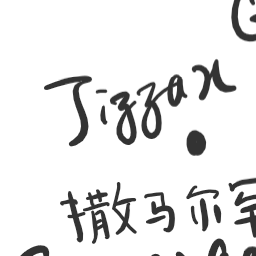 Jizzax
撒马尔罕